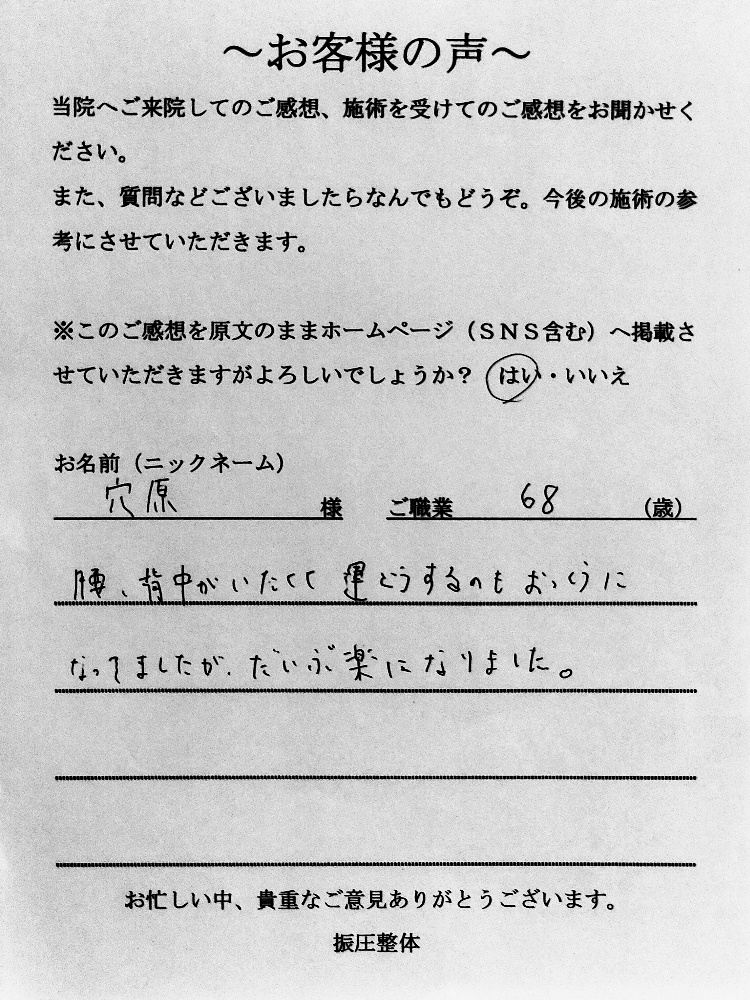 ～お客様の声～
当院へご来院してのご感想、施術を受けてのご感想をお聞かせく
ださい。
また、質問などございましたらなんでもどうぞ。今後の施術の参
考にさせていただきます。
※このご感想を原文のままホームページ（ＳＮＳ含む）へ掲載さ
せていただきますがよろしいでしょうか？　はい・いいえ
お名前（ニックネーム）
穴原 様 ご職業 68 （歳）
腰、背中がいたくて 運どうするのもおっくうに
なってましたが、だいぶ楽になりました。
お忙しい中、貴重なご意見ありがとうございます。
振圧整体